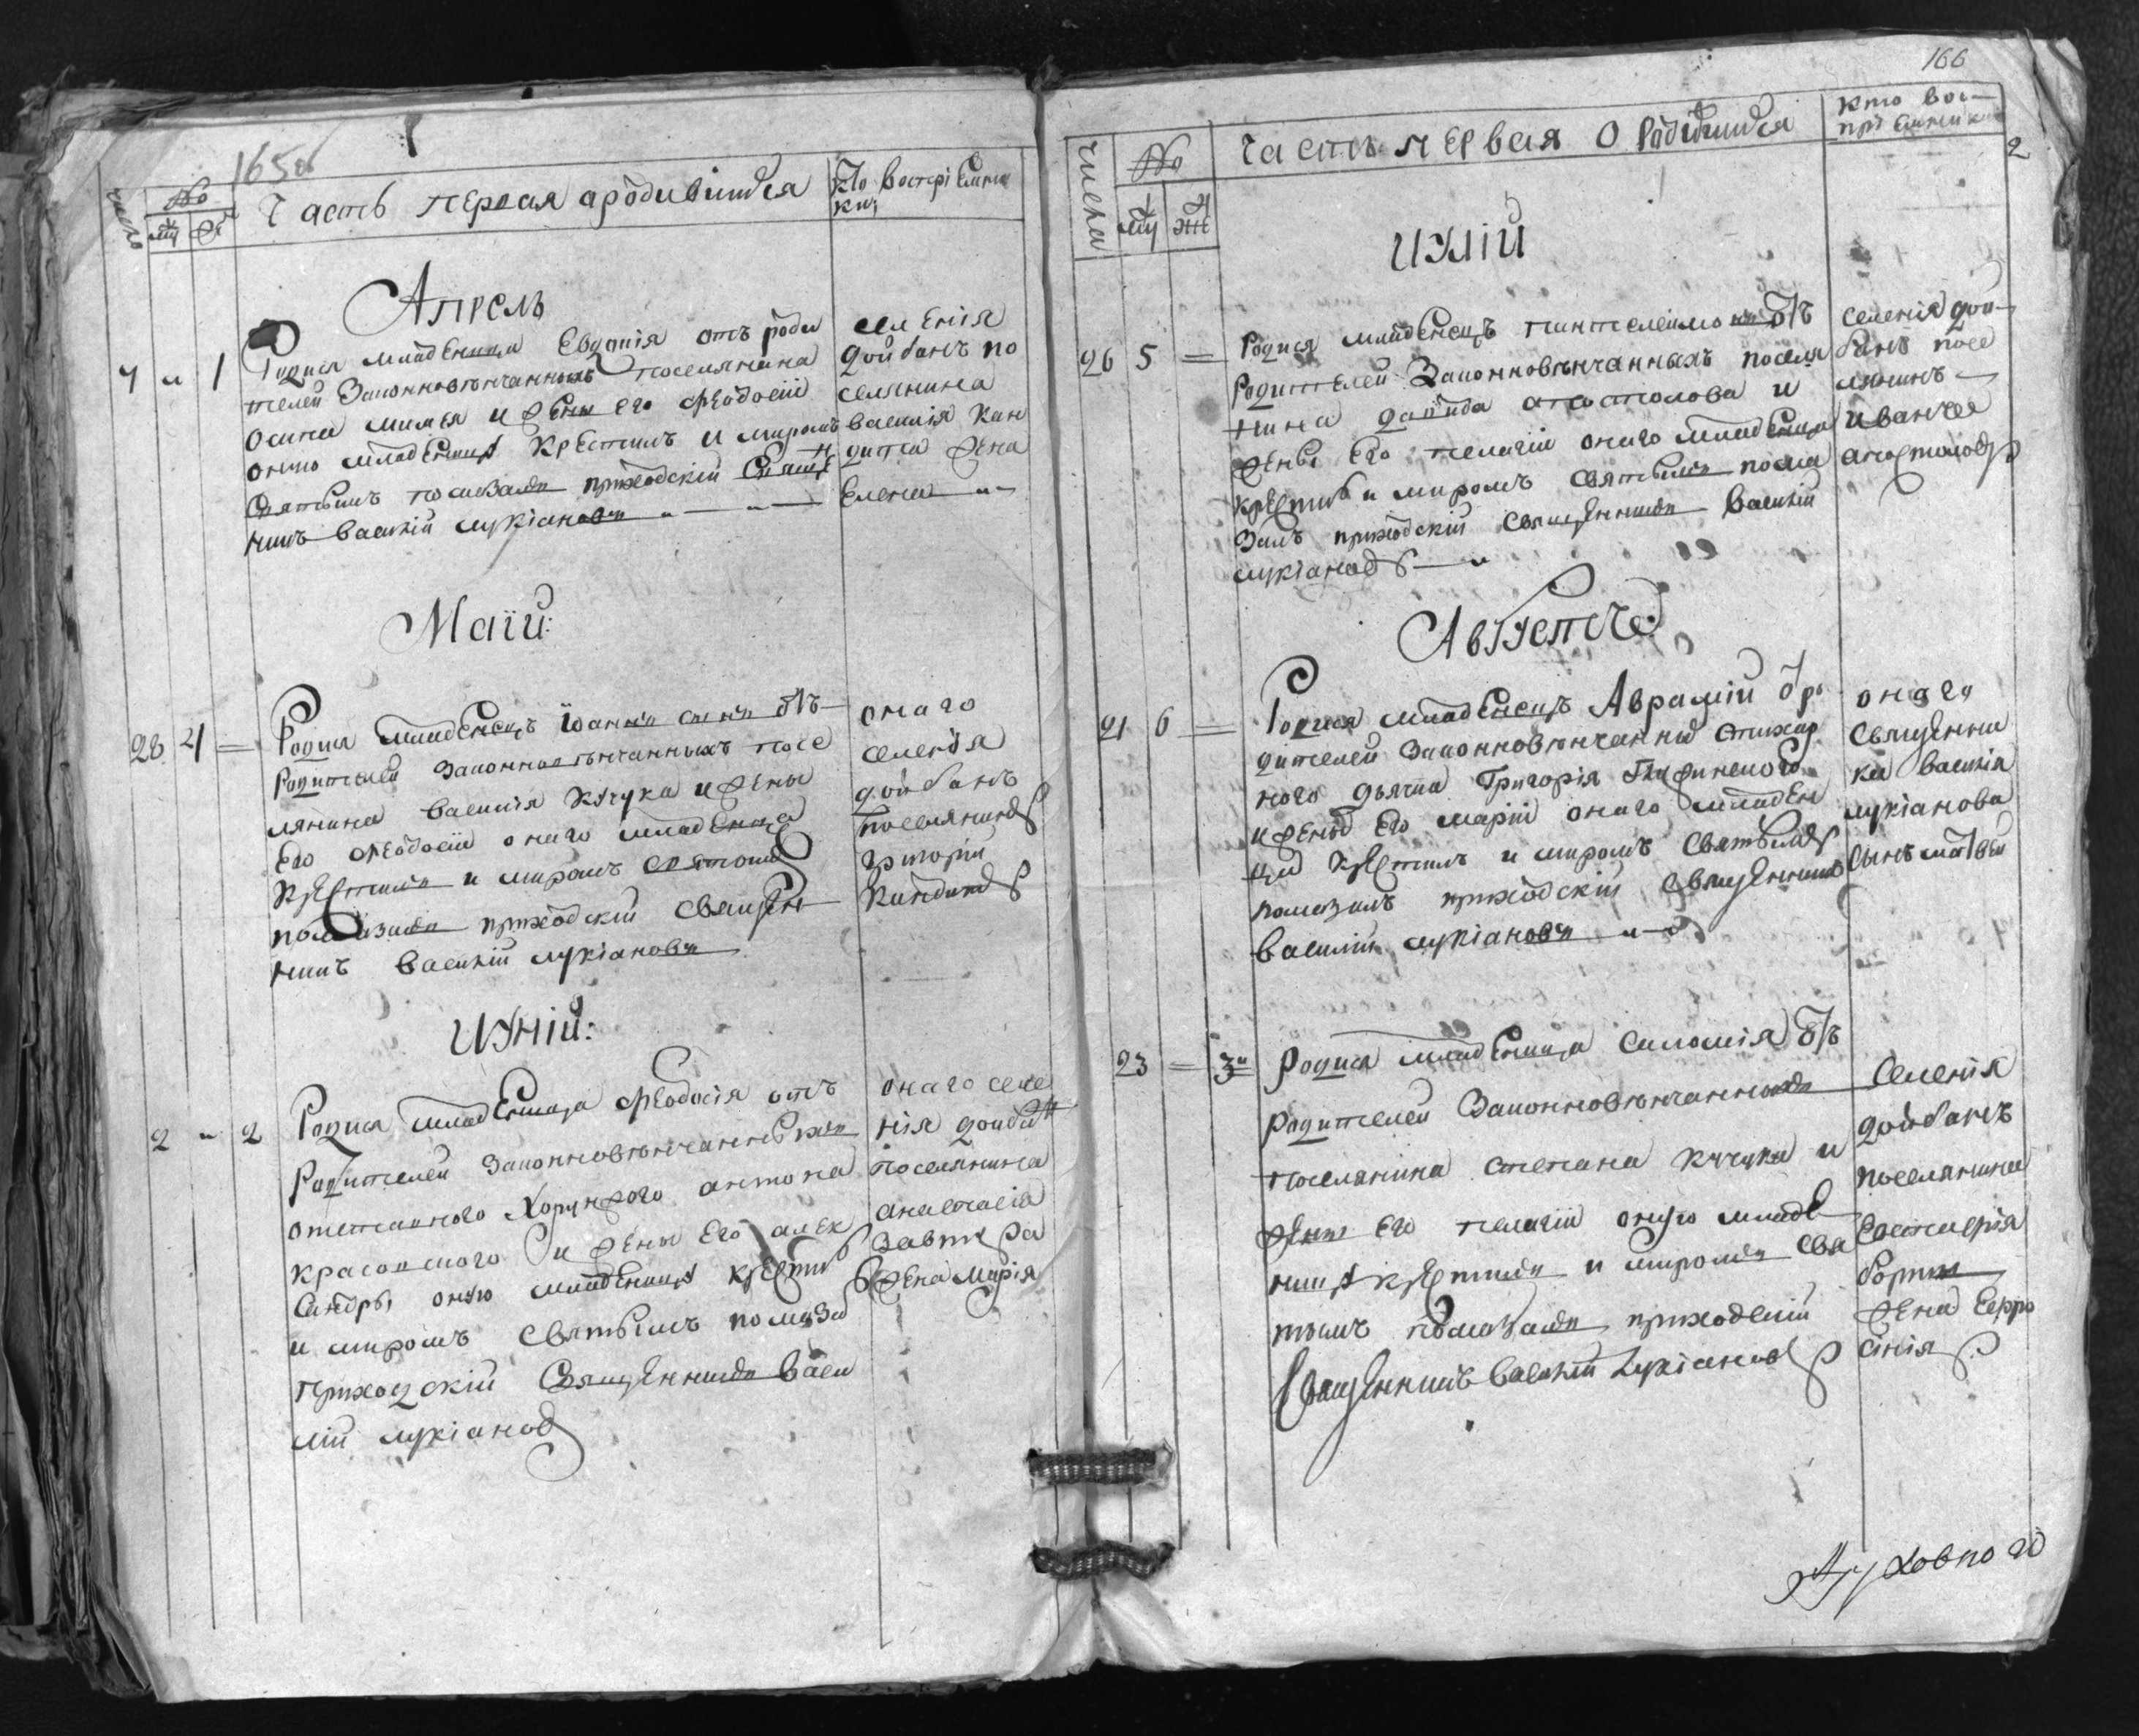 165об
число № Часть первая ародивішихся Кто восприємни
му же ки
Апрель
7 „ 1 Родися младеница Евдокія отъ роди
телей Законновѣнчанныхъ поселянина
Осипа и жены его Феодосіи
оную младеницу Крестилъ и миромъ
Святымъ помазалъ приходскій Свящ
нникъ Василій Лукіановъ
селенія
Дойбанъ по
селянина
Василія Кин
дити жена
Елена
Маїй:
28 4 = Родися младенецъ Їоаннъ отъ
Родителей Законновѣнчанныхъ посе
лянина Василія Кучука и жены
Его Феодосіи онаго младенца
Крестилъ и миромъ Святымъ
помазалъ приходскій Священ
никъ Василій Лукіановъ
онаго
селенія
Дойбанъ
поселянинъ
Григорій
Июній:
2 „ 2 Родися младеница Феодосія отъ
Родителей Законновѣнчанныхъ
отставного Хорунжого антона
красовского и жены Его алек
сандры оную младеницу крестилъ
и миромъ Святымъ помазалъ
приходскій Священникъ Васи
лій Лукіановъ
онаго селе
нія Дойбанъ
поселянина
анастасія
жена Марія
166
числа № часть первая О Родившихся Кто вос-
приемники
му же 2
Июлій
26 5 = Родися младенецъ пантелеимонъ Отъ
Родителей Законновѣнчанныхъ поселя
нина давида апостолова и
жены Его пелагіи онаго младенца
крестилъ и миромъ Святымъ пома
залъ приходскій Священникъ Василій
Лукіановъ
селенія Дой-
банъ посе
лянинъ
Иванъ
апостоловъ
Августъ
21 6 = Родися младенецъ Авраамій От ро
дителей Законновѣнчанныхъ стихар
ного дьячка Григорія
и жены Его Маріи онаго младен
ца Крестилъ и миромъ Святымъ
помазалъ приходскій Священникъ
Василій Лукіановъ
онаго
Священни
ка Василія
Лукіанова
Сынъ матвей
23 = 3 Родися младеница Саломія Отъ
Родителей Законновѣнчанныхъ
поселянина Степана Кучука и
жены Его пелагіи оную младе
ницу крестилъ и миромъ Свя
тымъ помазалъ приходскій
Священникъ Василій Лукіановъ
Селенія
Дойбанъ
поселянина
жена Ефро
сінія
Духовного